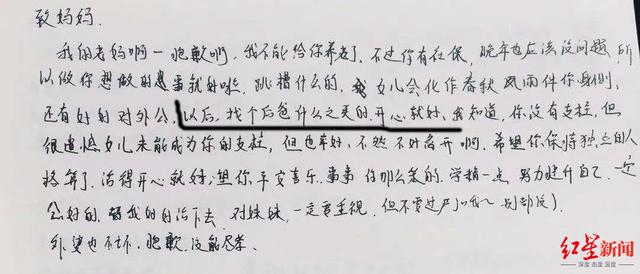 致妈妈.
我的老妈啊一抱歉啊,我不能给你养老了,不过你有社保,晚年也应该没问题,所
以做你想做的事就好啦,跳槽什么的,女儿会化作春秋风雨伴你身侧,
还有好的对外公,以后,找个后爸什么之类的,开心就好,我知道,你没有支柱,但
很遗憾女儿未能成为你的支柱,但也幸好,不然不好离开啊。希望你保持独立的人
格等了,活得开心就好,望你平安喜乐,事事 你那么的,学精一点,努力提升自己,一定
会好的,替我好好的活下去,对妹妹,一定要重视,但不要过严
外婆也不坏,抱歉,没能尽孝。
红星新闻
深度 态度 温度